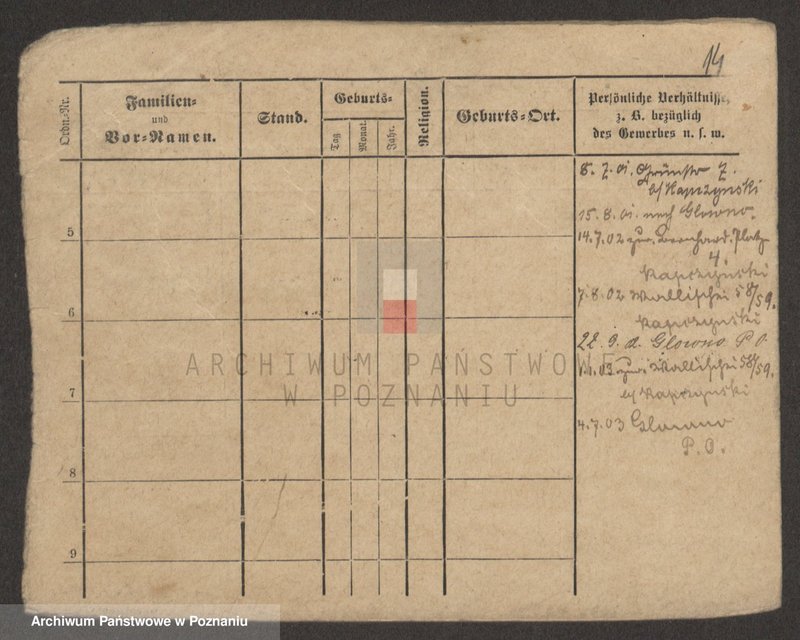 14
Ordn.-Nr.
Familien-
und
Vor-Namen.
Stand.
Geburts-
Tag
Monat.
Jahr.
Religion.
Geburts-Ort.
Persönliche Verhältnisse,
z. B. bezüglich
des Gewerbes u. s. w.
8. 7. 01. Grünstr 7.
b/ Kapczynski
15. 8. 01. nach Glowno.
5
14. 7. 02 zur. Bernhard. Platz
4.
Kapczynski
7. 8. 02 Wallischei 58/59.
6
Kapczynski
22. 9. a. Glowno P. O.
ARCHIWUM PAŃSTWOWE
03 zur. Wallischei 58/59.
W POZNANIU
7
b/ Kapczynski
4. 7. 03 Glowno
P. O.
8
9
Archiwum Państwowe w Poznaniu